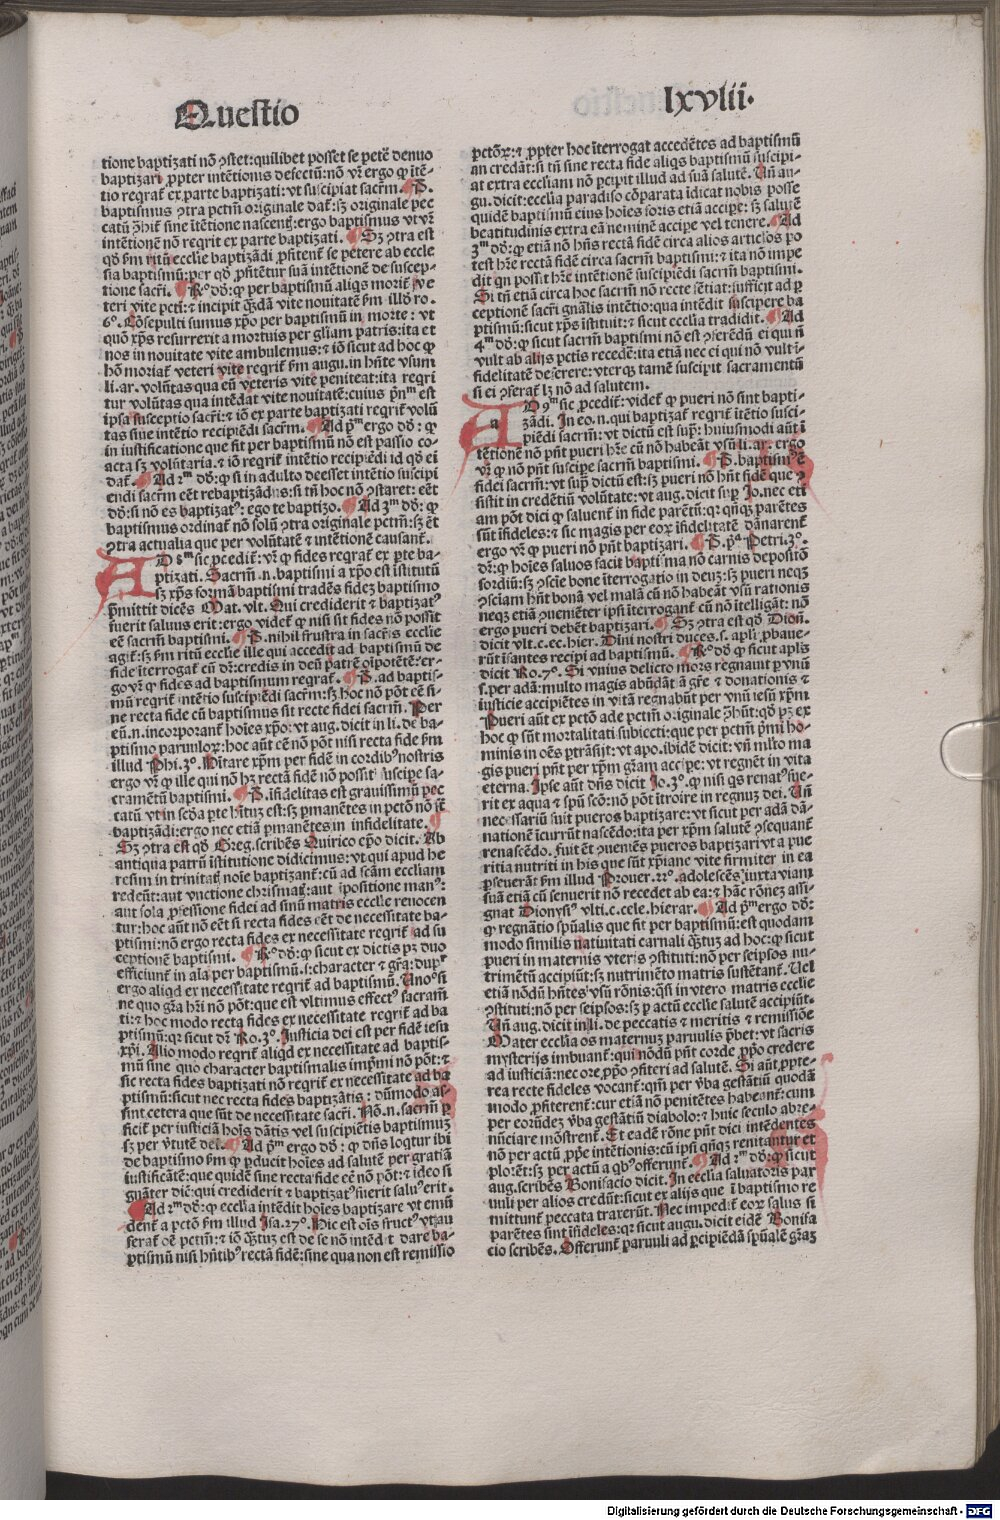 Questio
lxviii.
tione baptizati nō ꝯstet: quilibet posset se petē denuo
baptizari ꝓpter intētionis defectū: nō vr̄ ergo ꝙ ītē-
tio reqrat̄ ex parte baptizati: vt suscipiat sacrm̄. P.
baptismus ꝯtra pctm̄ originale dat̄: sꝫ originale pec
catū ꝯhit̄ sine ītētione nascent̄: ergo baptismus vt vr̄
intētionē nō reqrit ex parte baptizati. Sꝫ ꝯtra est
qd̄ ẜm ritū ecclie baptizādi ꝓfitent̄ se petere ab eccle
sia baptismū: per qd̄ ꝓfitētur suā intētionē de suscep-
tione sacri. Rº dō: ꝙ per baptismū aliqs morit̄ ve
teri vite pcti: ⁊ incipit qn̄dā vite nouitatē ẜm illō ro.
6º. Cōsepulti sumus xp̄o per baptismū in morte: vt
quō xp̄s resurrexit a mortuis per gliam patris: ita et
nos in nouitate vite ambulemus: ⁊ iō sicut ad hoc ꝙ
hō moriat̄ veteri vite reqrit̄ ẜm augu. in hn̄te vsum
li. ar. volūtas qua eū veteris vite peniteat: ita reqri
tur volūtas qua intēdat vite nouitatē: cuius pn̄m est
ipsa susceptio sacri: ⁊ iō ex parte baptizati reqrit̄ volū
tas siue intētio recipiēdi sacrm̄. Ad pm̄ ergo dō: ꝙ
in iustificatione que fit per baptismū nō est passio co-
acta sꝫ volūtaria. ⁊ iō reqrit̄ intētio recipiēdi id qd̄ ei
dat̄. Ad 2m dō: ꝙ si in adulto deesset intētio suscipi
endi sacrm̄ eēt rebaptizādus: si tn̄ hoc nō ꝯstaret: eēt
dō: si nō es baptizatꝰ: ego te baptizo. Ad 3m dō: ꝙ
baptismus ordinat̄ nō solū ꝯtra originale pctm̄: sꝫ ēt
ꝯtra actualia que per volūtatē ⁊ intētionē causant̄.
AD 8m sic ꝓcedit̄: vr̄ ꝙ fides reqrat̄ ex pte ba-
ptizati. Sacrm̄ .n. baptismi a xp̄o est īstitutū
sꝫ xp̄s formā baptismi tradēs fidez baptismo
p̄mittit dicēs Mat. vlt. Qui crediderit ⁊ baptizatꝰ
fuerit saluus erit: ergo videt̄ ꝙ nisi sit fides nō possit
eē sacrm̄ baptismi. P. nihil frustra in sacris ecclie
agit̄: sꝫ ẜm ritū ecclie ille qui accedit ad baptismū de
fide īterrogat̄ cū dr̄: credis in deū patrē oīpotētē: er-
go vr̄ ꝙ fides ad baptismum reqrat̄. P. ad baptis-
mū reqrit̄ intētio suscipiēdi sacrm̄: sꝫ hoc nō pōt eē si-
ne recta fide cū baptismus sit recte fidei sacrm̄. Per
eū .n. incorporant̄ hoīes xp̄o: vt aug. dicit in li. de ba-
ptismo paruuloꝝ: hoc aūt eē nō pōt nisi recta fide ẜm
illud Phi. 3º. Hitare xp̄m per fidē in cordibꝰ nostris
ergo vr̄ ꝙ ille qui nō hꝫ rectā fidē nō possit suscipe sa-
cramētū baptismi. P. ifidelitas est grauissimū pec
catū vt in scd̄a pte hītuꝫ est: sꝫ pmanētes in pctō nō st̄
baptizādi: ergo nec etiā pmanētes in infidelitate.
Sꝫ ꝯtra est qd̄ Greg. scribēs Quirico epo dicit. Ab
antiqua patrū īstitutione didicimus: vt qui apud he
resim in trinitatꝭ noīe baptizant̄: cū ad scām eccliam
redeūt: aut vnctione chrismatꝭ: aut īpositione manꝰ:
aut sola ꝓfessione fidei ad sinū matris ecclie reuocen
tur: hoc aūt nō eēt si recta fides eēt de necessitate ba-
ptismi: nō ergo recta fides ex necessitate reqrit̄ ad su
sceptionē baptismi. Rº dō: ꝙ sicut ex dictis pꝫ duo
efficiunt̄ in aīa per baptismū .s. character ⁊ gr̄a: dupꝉr
ergo aliqd ex necessitate reqrit̄ ad baptismū. Unoº si
ne quo gr̄a hr̄i nō pōt: que est vltimus effectꝰ sacram̄
ti: ⁊ hoc modo recta fides ex necessitate reqrit̄ ad ba
ptismū: qꝛ sicut dꝫ Ro. 3º. Justicia dei est per fidē iesu
xp̄i. Alio modo reqrit̄ aliqd ex necessitate ad baptis-
mū sine quo character baptismalis imp̄mi nō pōt: ⁊
sic recta fides baptizati nō reqrit̄ ex necessitate ad ba
ptismū: sicut nec recta fides baptizātis: dūmodo as-
sint cetera que sūt de necessitate sacri. Nō .n. sacrm̄ ꝑ
ficit̄ per iusticiā hoīs dātis vel suscipiētis baptismuꝫ
sꝫ per ꝟtutē dei. Ad pm̄ ergo dō: ꝙ dn̄s loqtur ibi
de baptismo ẜm ꝙ pducit hoīes ad salutē per gratiā
iustificātē: que quidē sine recta fide eē nō pōt: ⁊ ideo si
gnāter diē: qui crediderit ⁊ baptizatꝰ fuerit saluꝰ erit.
Ad 2m dō: ꝙ ecclia intēdit hoīes baptizare vt emū
dent̄ a pctō ẜm illud Isa. 27º. Hic est oīs fructꝰ vt au
ferat̄ oē pctm̄: ⁊ iō qn̄tuꝫ est de se nō intēdit dare ba-
ptismū nisi hn̄tibꝰ rectā fidē: sine qua non est remissio
pctōꝝ: ⁊ ꝓpter hoc īterrogat accedētes ad baptismū
an credāt: si tn̄ sine recta fide aliqs baptismū suscipi-
at extra eccliam nō pcipit illud ad suā salutē. Un̄ au-
gu. dicit: ecclia paradiso cōparata īdicat nobis posse
quidē baptismū eius hoīes foris etiā accipe: sꝫ salutē
beatitudinis extra eā neminē accipe vel tenere. Ad
3m dō: ꝙ etiā nō hn̄s rectā fidē circa alios articlos po
test hr̄e rectā fidē circa sacrm̄ baptismi: ⁊ ita nō impe
dit̄ qn possit hr̄e intētionē suscipiēdi sacrm̄ baptismi.
Si tn̄ etiā circa hoc sacrm̄ nō recte sētiat: sufficit ad ꝑ
ceptionē sacri gn̄alis intētio: qua intēdit suscipere ba
ptismū: sicut xp̄s īstituit: ⁊ sicut ecclia tradidit. Ad
4m dō: ꝙ sicut sacrm̄ baptismi nō est ꝯferēdū ei qui n̄
vult ab alijs pctis recede: ita etiā nec ei qui nō vult ī-
fidelitatē deserere: vterqꝫ tamē suscipit sacramentū
si ei ꝯferat̄ lꝫ nō ad salutem.
AD 9m sic ꝓcedit̄: videt̄ ꝙ pueri nō sint bapti-
zādi. In eo .n. qui baptizat̄ reqrit̄ itētio susci-
piēdi sacrm̄: vt dictū est sup̄: huiusmodi aūt ī
tētionē nō pn̄t pueri hr̄e cū nō habeāt vsū li. ar. ergo
vr̄ ꝙ nō pn̄t suscipe sacrm̄ baptismi. P. baptismꝰ ē
fidei sacrm̄: vt sup̄ dictū est: sꝫ pueri nō hn̄t fidē que ꝯ
sistit in credētiū volūtate: vt aug. dicit suꝑ Jo. nec eti
am pōt dici ꝙ saluent̄ in fide parētū: qꝛ qn̄qꝫ parētes
sūt īfideles: ⁊ sic magis per eoꝝ īfidelitatē dānarent̄
ergo vr̄ ꝙ pueri nō pn̄t baptizari. P. pª Petri. 3º.
dr̄: ꝙ hoīes saluos facit baptisma nō carnis depositō
sordiū: sꝫ ꝯscie bone īterrogatio in deuꝫ: sꝫ pueri neqꝫ
ꝯsciam hn̄t bonā vel malā cū nō habeāt vsū rationis
neqꝫ etiā ꝯueniēter ipsi īterrogant̄ cū nō ītelligāt: nō
ergo pueri debēt baptizari. Sꝫ ꝯtra est qd̄ Dion̄.
dicit vlt. c. ec. hier. Diuini nostri duces .s. apli ꝓbaue-
rūt īfantes recipi ad baptismū. Rº dō ꝙ sicut apls
dicit Ro. 7º. Si vnius delicto mors regnauit ꝑ vnū
.s. per adā: multo magis abūdātiā gr̄e ⁊ donationis ⁊
iusticie accipiētes in vitā regnabūt per vnū iesū xp̄m
Pueri aūt ex pctō ade pctm̄ originale ꝯhūt: qd̄ pꝫ ex
hoc ꝙ sūt mortalitati subiecti: que per pctm̄ pmi ho-
minis in oēs ptrāsijt: vt apo. ibidē dicit: vn̄ mꝉto ma
gis pueri pn̄t per xp̄m gr̄am accipe: vt regnēt in vita
eterna. Ipse aūt dn̄s dicit Jo. 3º. ꝙ nisi qs renatꝰ fue-
rit ex aqua ⁊ spū scō: nō pōt ītroire in regnuꝫ dei. Un̄
necessariū fuit pueros baptizare: vt sicut per adā dā-
nationē icurrūt nascēdo: ita per xp̄m salutē ꝯsequant̄
renascēdo. Fuit ēt ꝯueniēs pueros baptizari vt a pue
ritia nutriti in his que sūt xp̄iane vite firmiter in ea
pseuerāt ẜm illud Prouer. 22º. adolescēs iuxta viam
suā etiā cū senuerit nō recedet ab ea: ⁊ hāc rōnez assi-
gnat Dionysiꝰ vlti. c. cele. hierar. Ad pm̄ ergo dō:
ꝙ regnātio spūalis que fit per baptismū: est quodam
modo similis natiuitati carnali qn̄tuꝫ ad hoc: ꝙ sicut
pueri in maternis vteris ꝯstituti: nō per seipsos nu-
trimētū accipiūt: sꝫ nutrimēto matris sustētant̄. Uel
etiā nōdū hn̄tes vsū rōnis: qn̄si in vtero matris ecclie
ꝯstituti: nō per seipsos: sꝫ ꝑ actū ecclie salutē accipiūt.
Un̄ aug. dicit in li. de peccatis ⁊ meritis ⁊ remissiōe
Mater ecclia os maternuꝫ paruulis p̄bet: vt sacris
mysterijs imbuant̄: qui nōdū pn̄t corde ꝓpo credere
ad iusticiā: nec ore ꝓpo ꝯfiteri ad salutē. Si aūt ꝓpte-
rea recte fideles vocant̄: qm̄ per ꝟba gestātiū quodā
modo ꝓfiterent̄: cur etiā nō penitētes habeant̄: cum
per eorūdeꝫ ꝟba gestātiū diabolo: ⁊ huic seculo abre-
nūciare mōstrent̄. Et eadē rōne pn̄t dici intēdentes
nō per actū ꝓpe ītētionis: cū ipsi qn̄qꝫ renitantur et
plorēt: sꝫ per actū a qbꝰ offerunt̄. Ad 2m dō: ꝙ sicut
aug. scribēs Bonifacio dicit. In ecclia saluatoris par
uuli per alios credūt: sicut ex alijs que ī baptismo re
mittunt̄ peccata traxerūt. Nec impedit̄ eoꝝ salus si
parētes sint īfideles: qꝛ sicut augu. dicit eidē Bonifa
cio scribēs. Offerunt̄ paruuli ad ꝑcipiēdā spūalē gr̄aꝫ
Digitalisierung gefördert durch die Deutsche Forschungsgemeinschaft - DFG